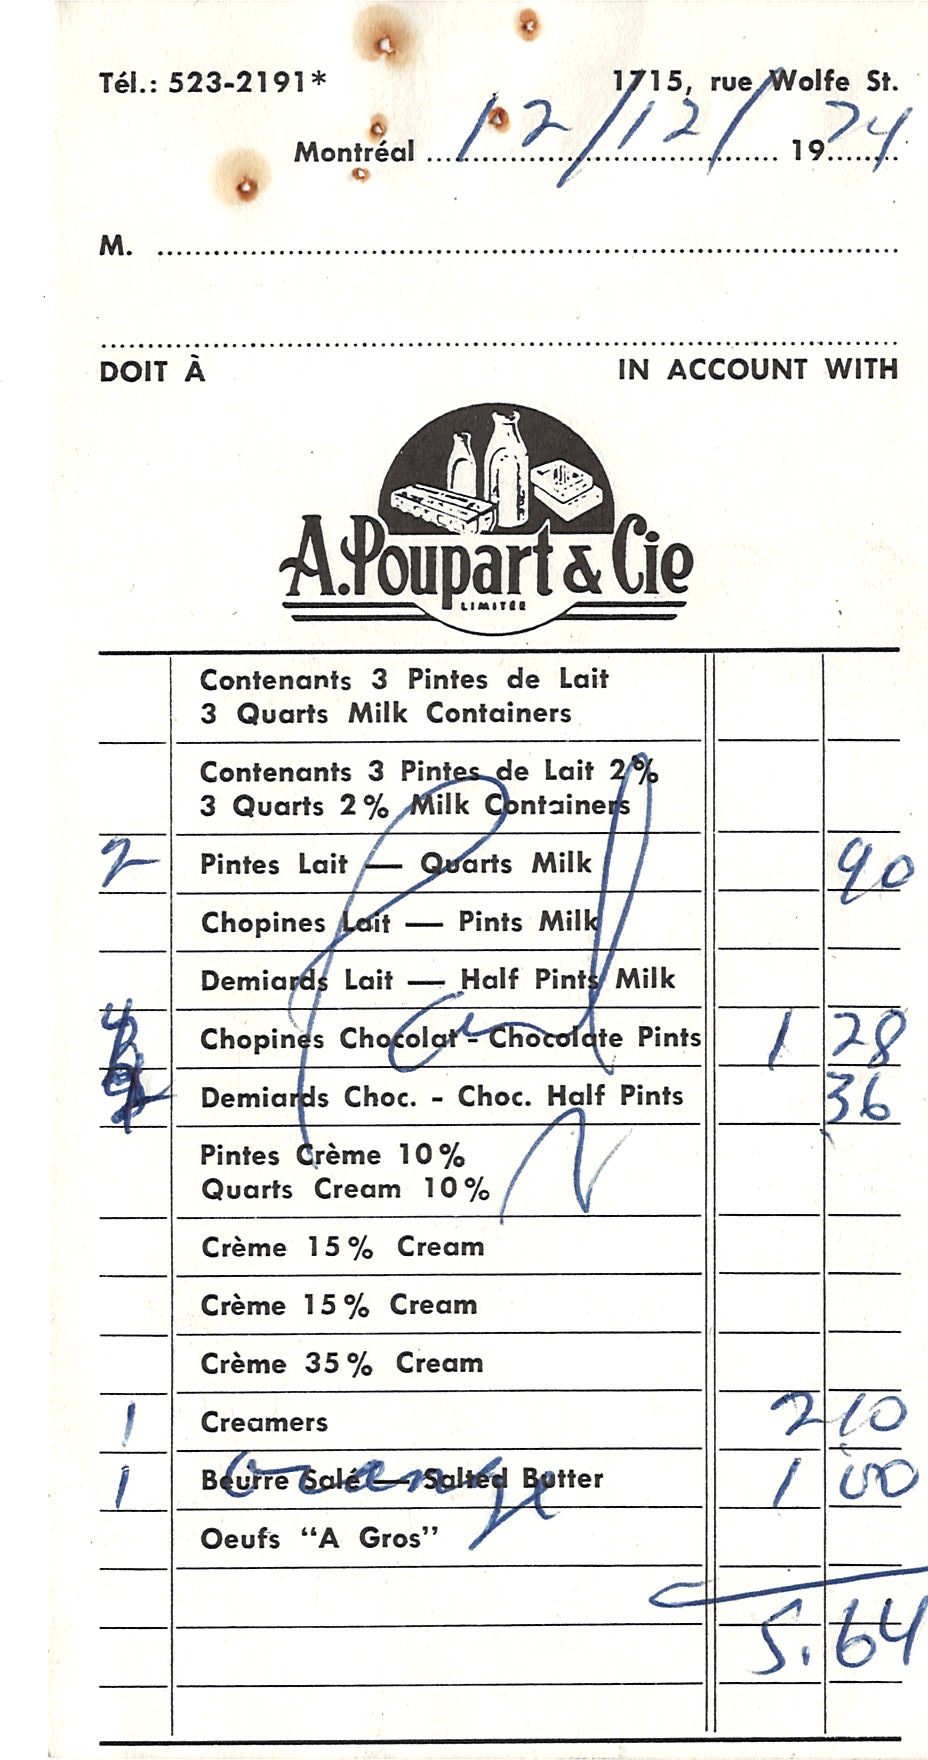 Tél.: 523-2191* 1715, rue Wolfe St.
Montréal 12/12/ 1974
M.
DOIT À IN ACCOUNT WITH
A. Poupart & Cie
LIMITÉE
Contenants 3 Pintes de Lait
3 Quarts Milk Containers
Contenants 3 Pintes de Lait 2%
3 Quarts 2% Milk Containers
2 Pintes Lait — Quarts Milk 90
Chopines Lait — Pints Milk
Demiards Lait — Half Pints Milk
4 Chopines Chocolat - Chocolate Pints 1 28
2 Demiards Choc. - Choc. Half Pints 36
Pintes Crème 10%
Quarts Cream 10%
Crème 15% Cream
Crème 15% Cream
Crème 35% Cream
1 Creamers 2 10
1 Beurre Salé — Salted Butter 1 00
orange
Oeufs "A Gros"
5.64
Paid